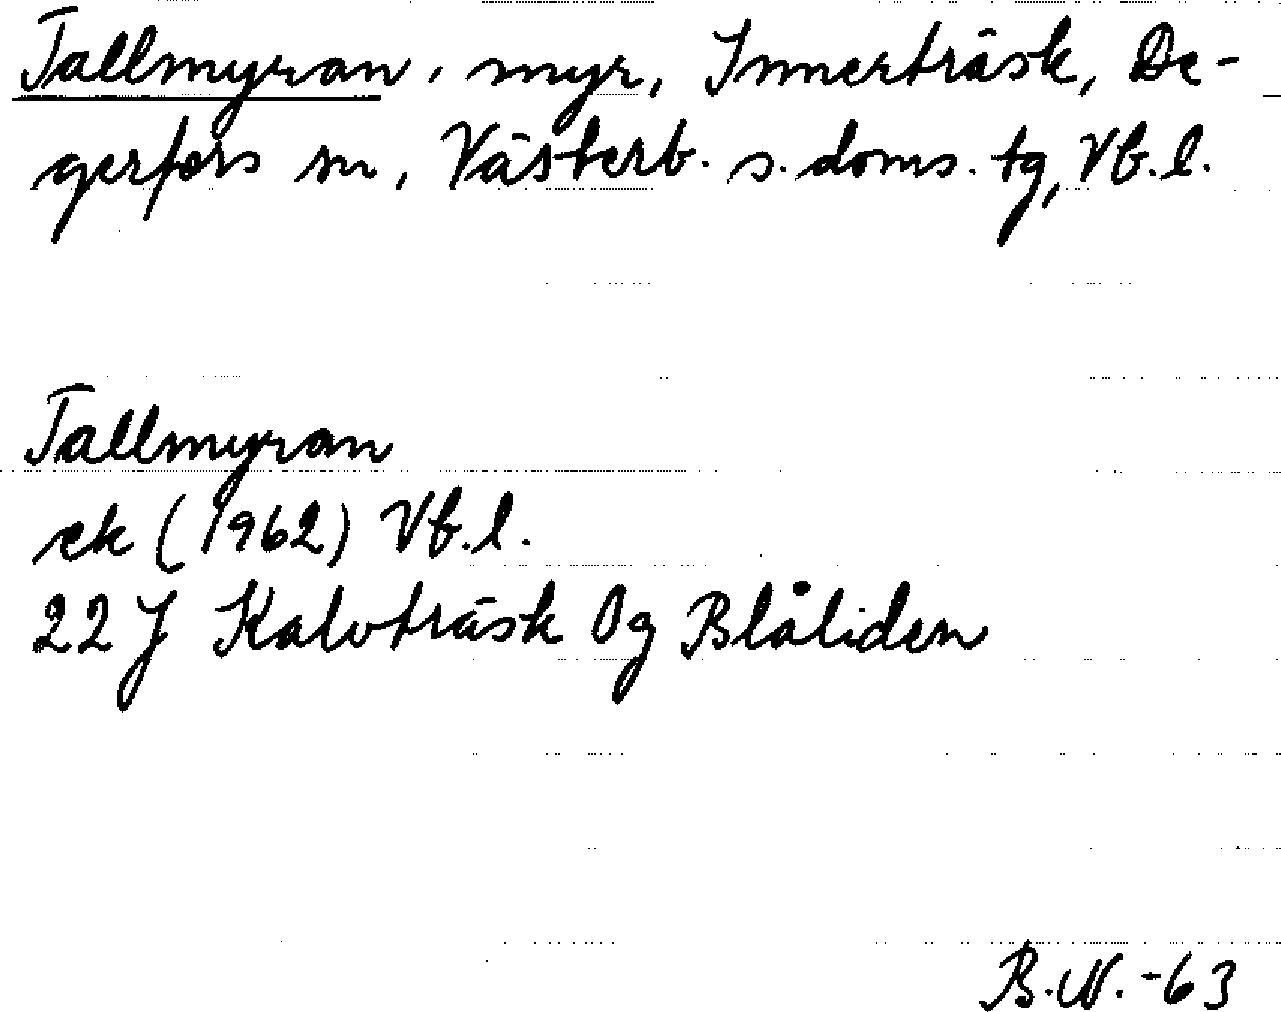 Tallmyran, myr, Innerträsk, De-
gerfors sn, Västerb. s. doms. tg, Vb. l.
Tallmyran
ek (1962) Vb. l.
22 J Kalvträsk 0g Blåliden
B.N. -63